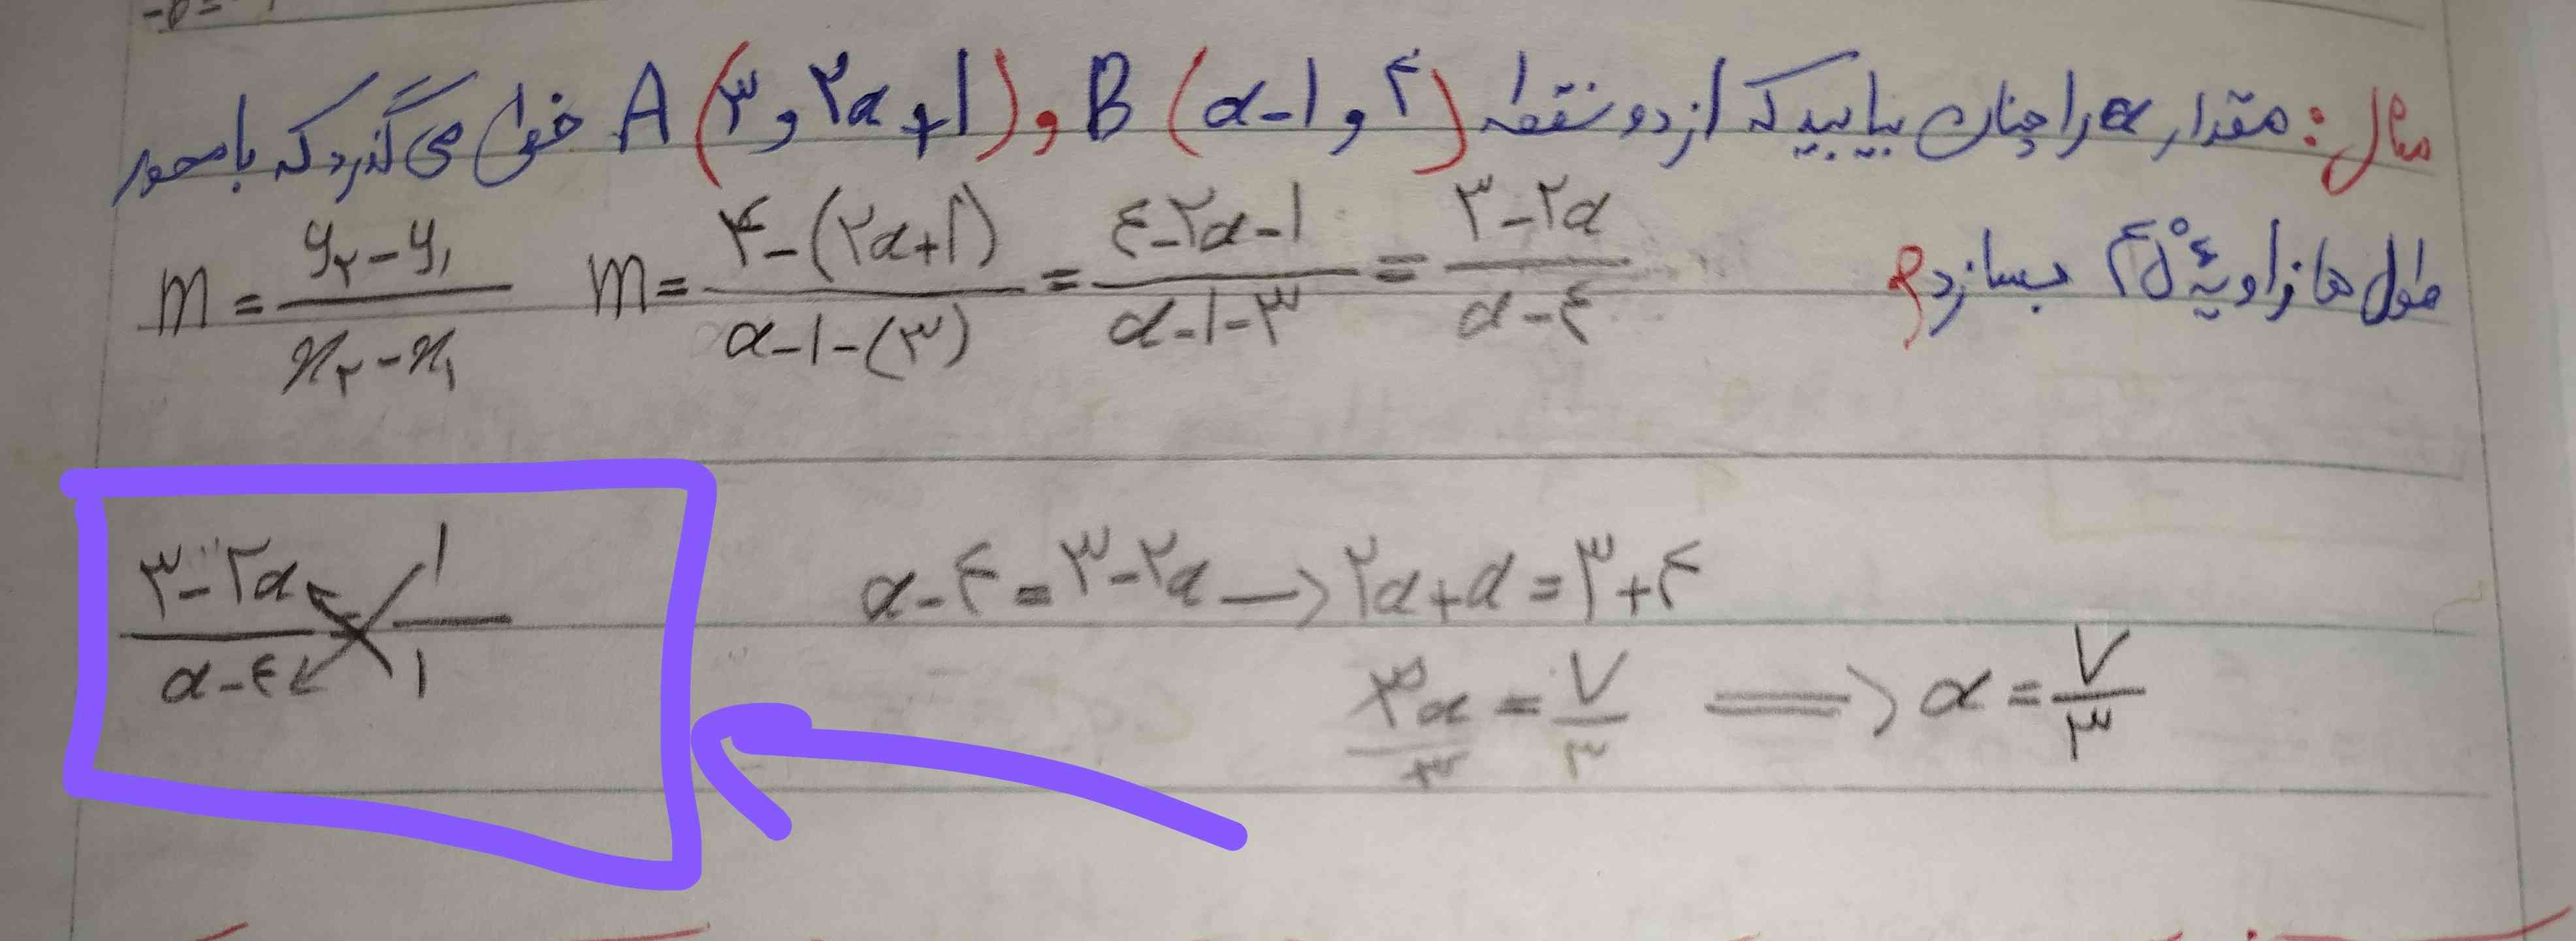 مثال: مقدار α را چنان بیابید که از دو نقطه A(۳ و ۲α+۱) و B(α-۱ و ۴) خطی می گذرد که با محور
طول ها زاویه ۴۵° بسازد؟
m = (y₂-y₁)/(x₂-x₁)   m = (۴-(۲α+۱))/(α-۱-(۳)) = (۴-۲α-۱)/(α-۱-۳) = (۳-۲α)/(α-۴)
(۳-۲α)/(α-۴) = ۱/۱   α-۴=۳-۲α → ۲α+α=۳+۴
۳α/۳ = ۷/۳ ⟹ α = ۷/۳